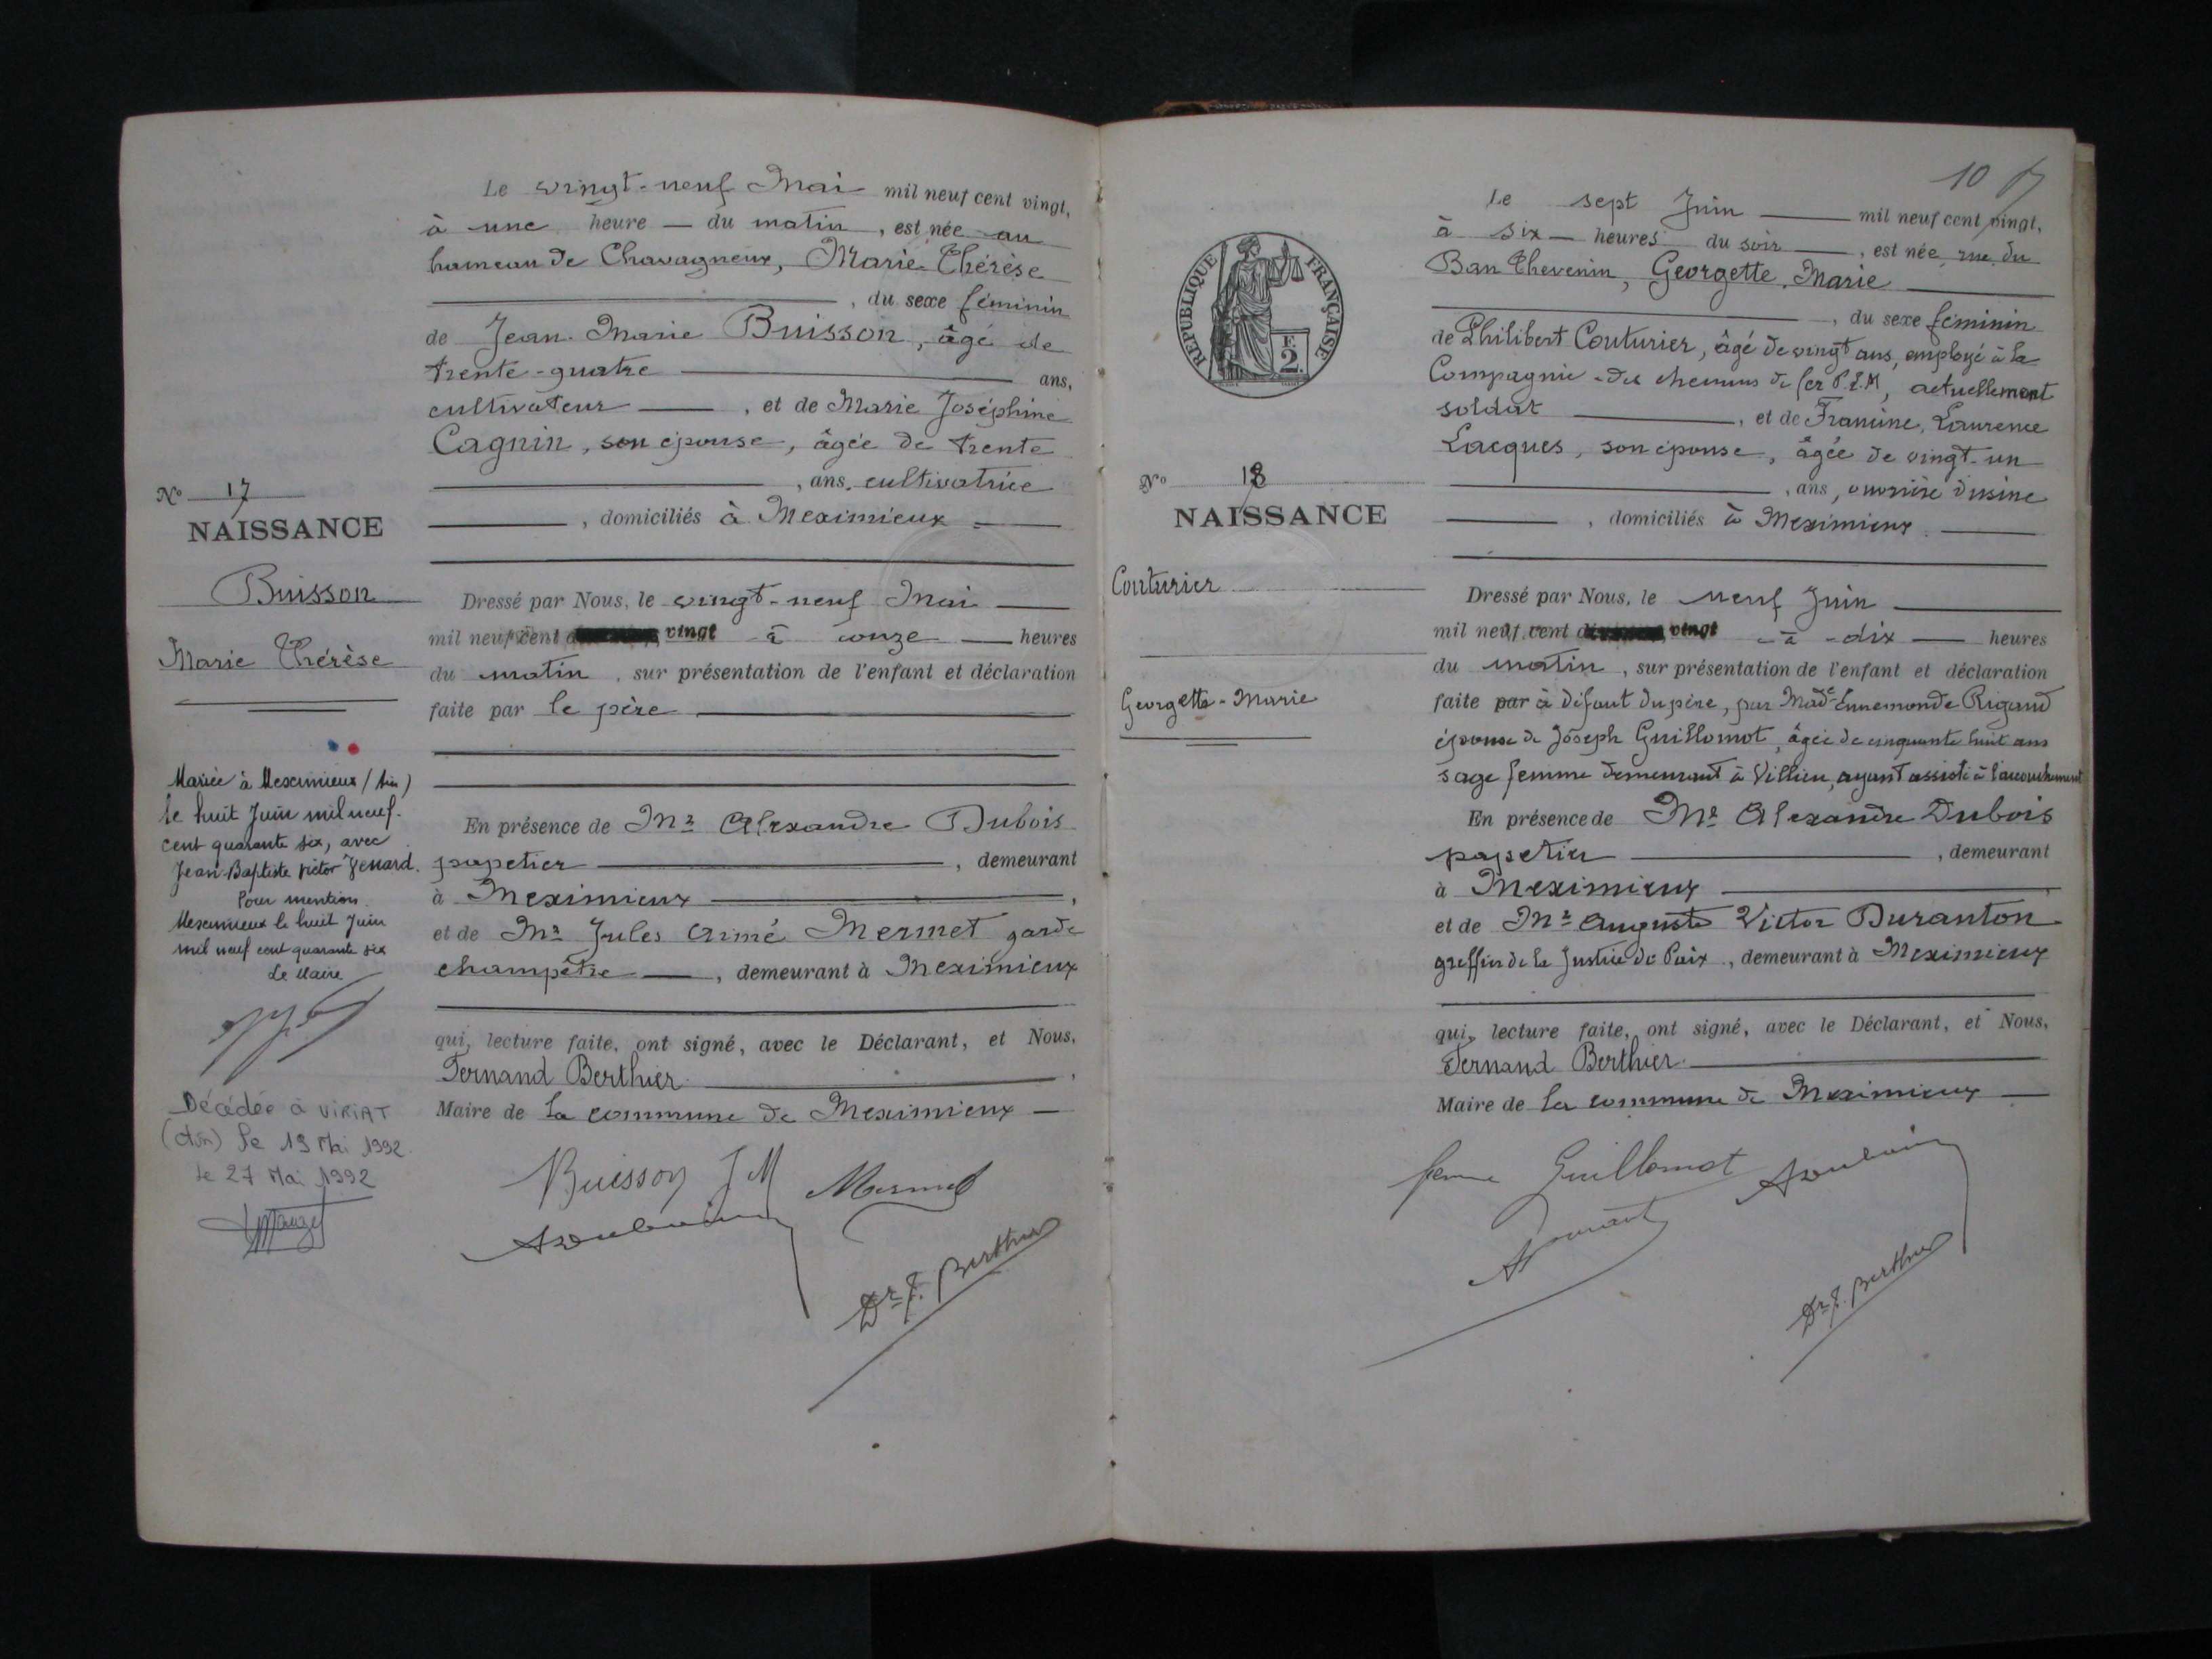 Le vingt-neuf Mai mil neuf cent vingt,
à une heure — du matin, est née au
hameau de Chavagneux, Marie-Thérèse
, du sexe féminin
de Jean-Marie Buisson, âgé de
trente-quatre ans,
cultivateur, et de Marie Joséphine
Cagnin, son épouse, âgée de trente
, ans, cultivatrice
, domiciliés à Meximieux
No 17
NAISSANCE
Buisson
Marie Thérèse
Dressé par Nous, le vingt-neuf Mai
mil neuf cent vingt à onze heures
du matin, sur présentation de l'enfant et déclaration
faite par le père
En présence de Mr Alexandre Dubois
papetier, demeurant
à Meximieux,
et de Mr Jules Aimé Mermet garde
champêtre, demeurant à Meximieux
qui, lecture faite, ont signé, avec le Déclarant, et Nous,
Fernand Berthier
Maire de la commune de Meximieux
Buisson JM Mermet
Dr F. Berthier
Mariée à Meximieux (Ain)
le huit Juin mil neuf
cent quarante six, avec
Jean-Baptiste Victor
Pour mention
Meximieux le huit Juin
mil neuf cent quarante six
Le Maire
Décédée à VIRIAT
(Ain) le 19 Mai 1992
le 27 Mai 1992
10
RÉPUBLIQUE FRANÇAISE
F.
2.
Le sept Juin mil neuf cent vingt,
à six heures du soir, est née, rue du
Ban Thevenin, Georgette, Marie
, du sexe féminin
de Philibert Couturier, âgé de vingt ans, employé à la
Compagnie des chemins de fer P.L.M, actuellement
soldat, et de Francine, Laurence
Lacques, son épouse, âgée de vingt-un
, ans, ouvrière d'usine
, domiciliés à Meximieux.
No 18
NAISSANCE
Couturier
Georgette-Marie
Dressé par Nous, le neuf Juin
mil neuf cent vingt à dix heures
du matin, sur présentation de l'enfant et déclaration
faite par à défaut du père, par Made Ennemonde Rigaud
épouse de Joseph Guillomot, âgée de cinquante huit ans
sage femme demeurant à Villieu, ayant assisté à l'accouchement
En présence de Mr Alexandre Dubois
papetier, demeurant
à Meximieux
et de Mr Auguste Victor Duranton
greffier de la Justice de Paix, demeurant à Meximieux
qui, lecture faite, ont signé, avec le Déclarant, et Nous,
Fernand Berthier
Maire de la commune de Meximieux
femme Guillomot
Dr F. Berthier